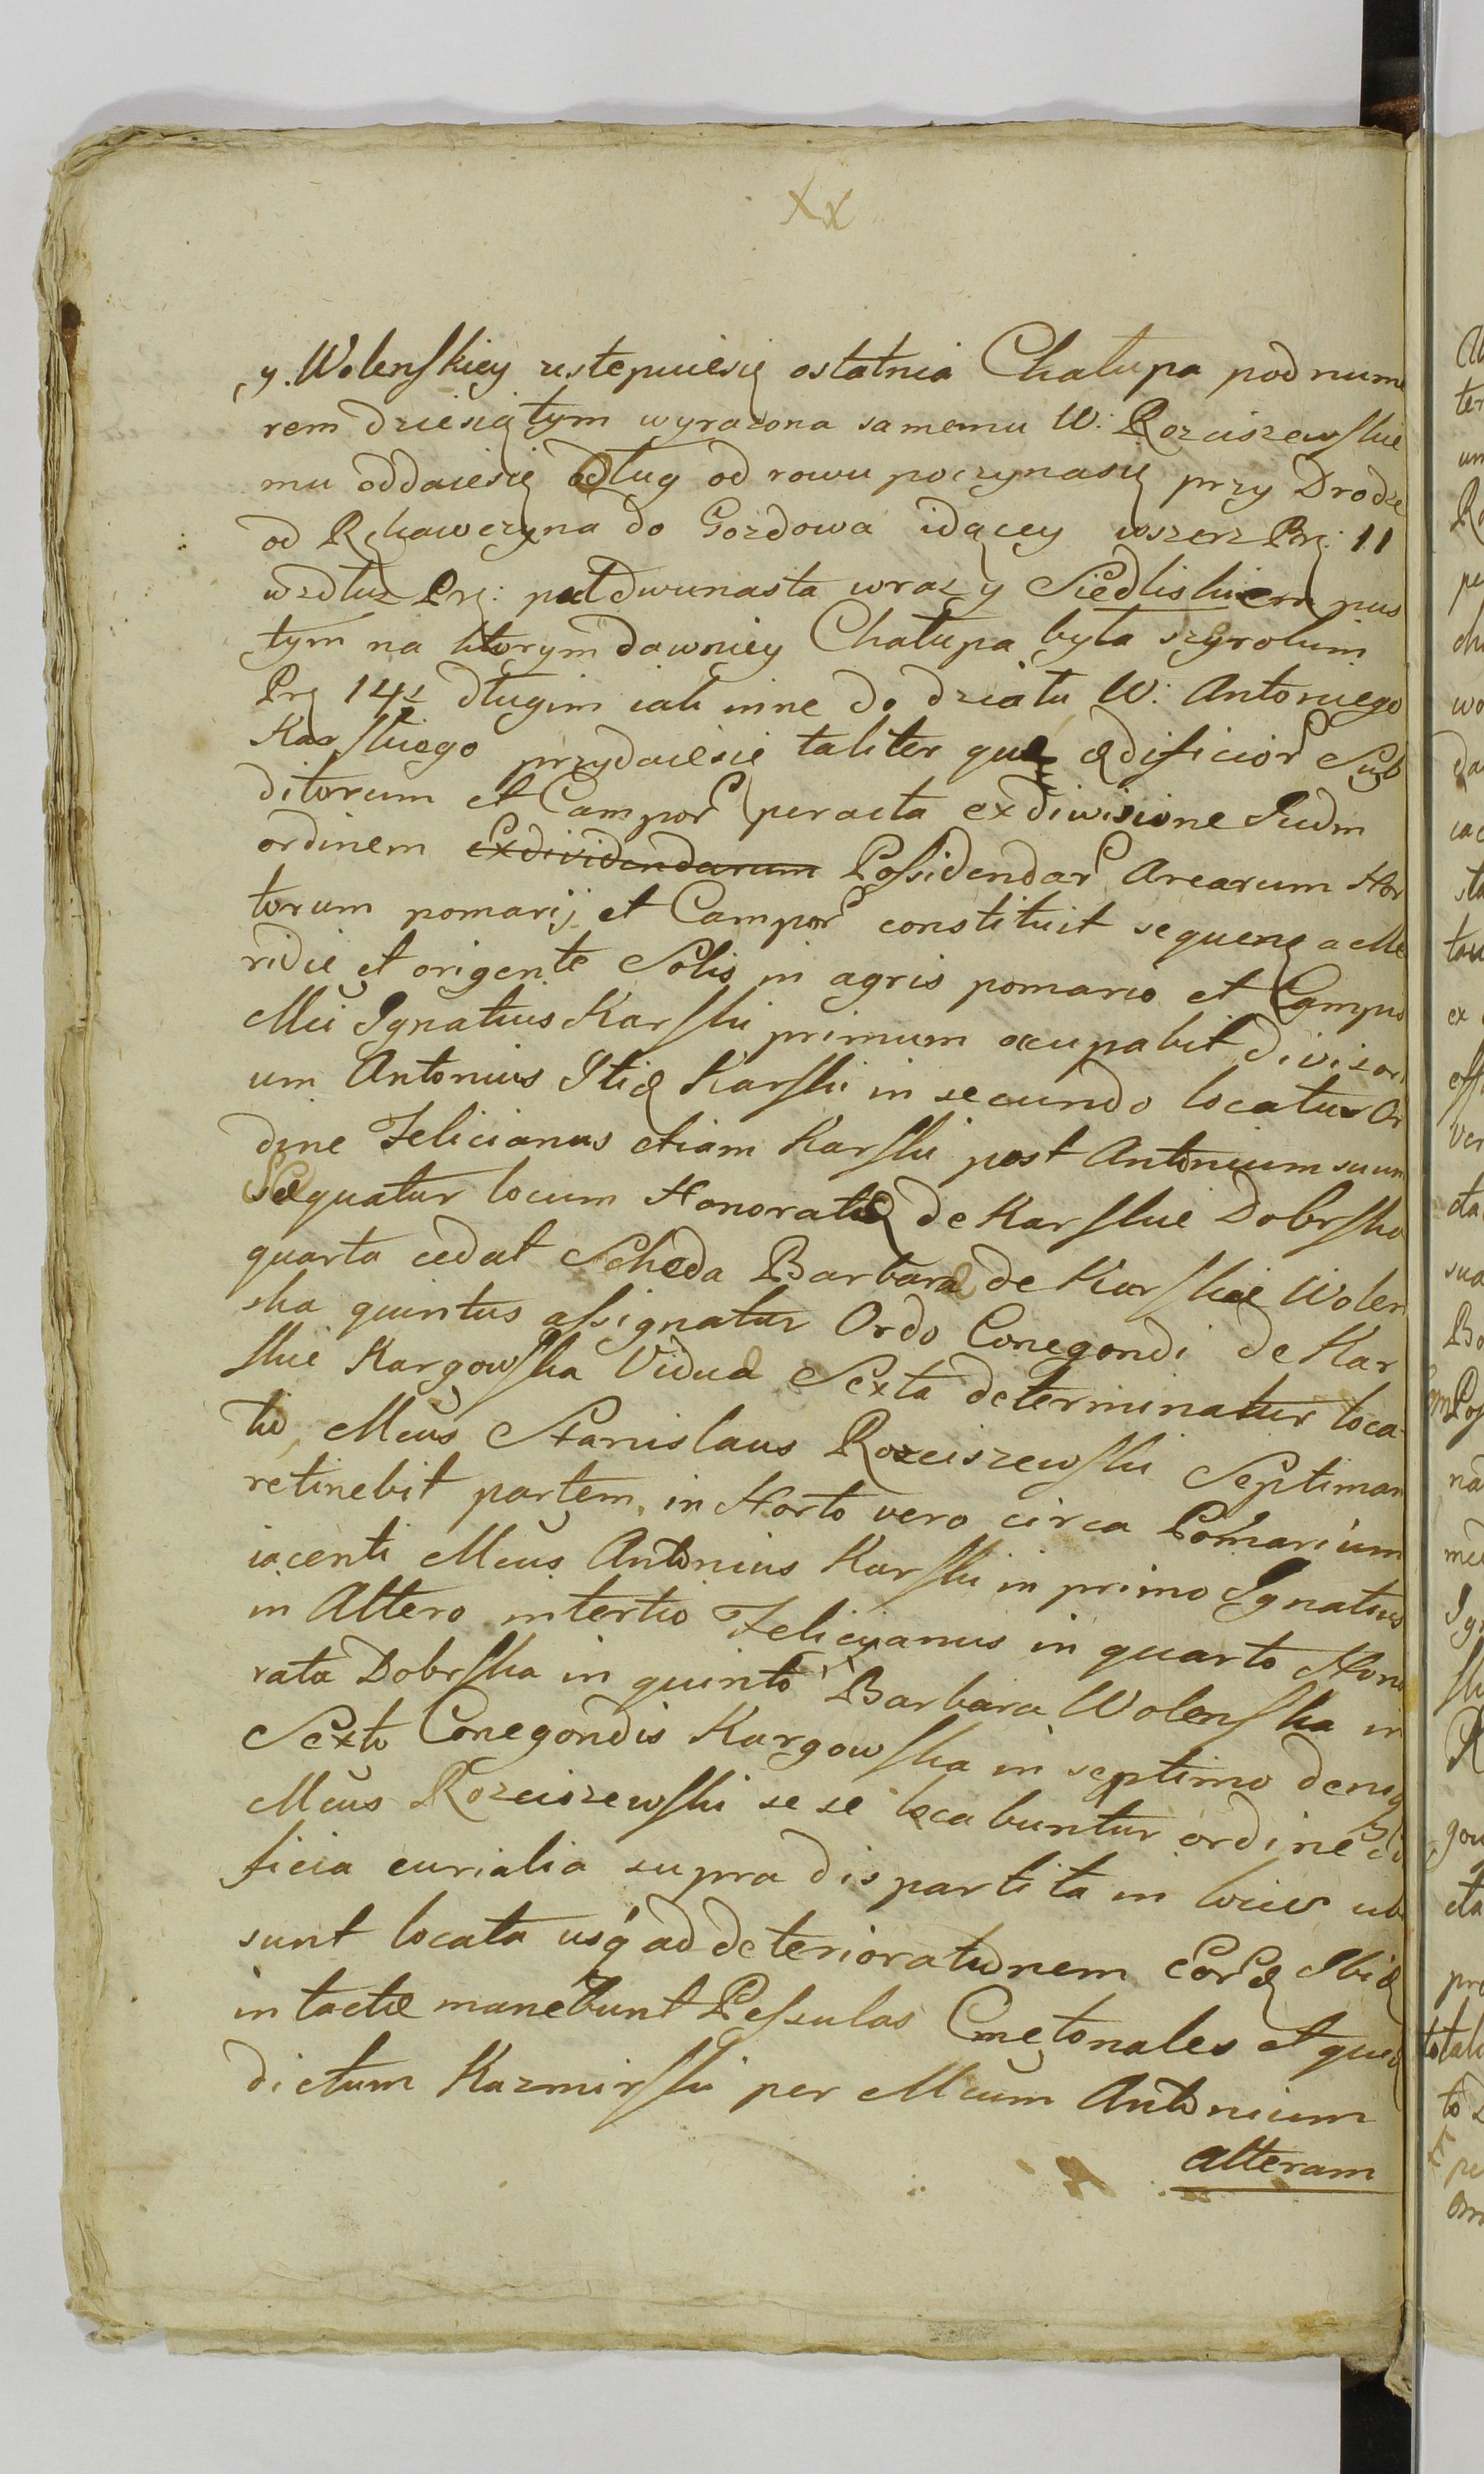 xx
y. Wolenskiey ustepuiesię ostatnia Chalupa pod nume
rem dziesiątym wyrazona samemu W: Rozciszewskie
mu oddaiesię odlug od rowu poczynasię przy Drodze
od Rękawczyna do Gozdowa idącey wszerz Prę: 11
wzdłuz Prę: puł dwunasta wraz y Siedliskiem pus
tym na ktorym dawniey Chałupa była szyrokim
Prę 14½ długim iak inne do działu W: Antoniego
Karskiego przydaiesie taliter quę ędificior Sub
ditorum et Campor peracta exdivisione Iudm
ordinem exdividendarum Possidendar Arearum Hor
torum pomarij et Campor constituit sequenę a Me
ridie et origente Solis in agris pomario et Campis
Mci Ignatius Karski primum occupabit divisori
um Antonius Itię Karski in secundo locatur Or
dine Felicianus etiam Karski post Antonium suum
Sequatur locum Honoratæ de Karskie Dobrska
quarta cedat Scheda Barbaræ de Karskie Wolen
ska quintus assignatur Ordo Conegondi de Kar
skie Kargowska Vidua Sexta determinatur loca
tio, Mcus Stanislaus Rozciszewski Septimam
retinebit partem, in Horto vero circa Pomarium
iacenti Mcus Antonius Karski in primo Ignatius
in Altero in tertio Felicyanus in quarto Hono
rata Dobrska in quinto Barbara Wolenska in
Sexto Conegondis Kargowska in septimo deniq
Mcus Rozciszewski se se locabuntur ordine
ficia curialia supra dispartita in locis ub
sunt locata usq ad deteriorationem eorę Ibię
intacte manebunt Pessulas Cmetonales et
dictum Kazmirski per Mcum Antonium
alteram